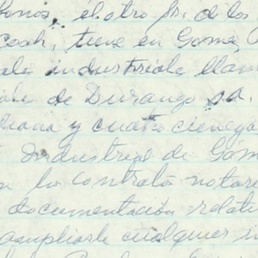 el otro fr. de los
coah, tiene en Gómez
industriales llam
de Durango S.A.
y cuatro cienega
Industrial de Góm
los contratos notar
documentación relati
ampliarle cualquier